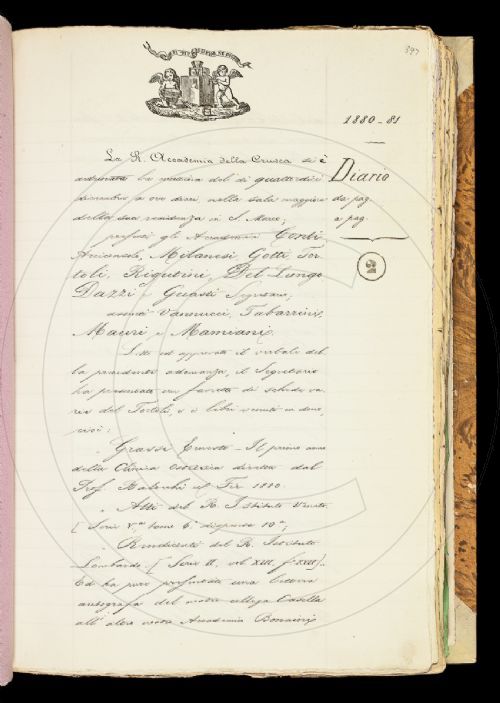 397
1880-81
La R. Accademia della Crusca si è
adunata la mattina del dì quattordici
dicembre a ore dieci, nella sala maggiore
della sua residenza in S. Marco;
presenti gli Accademici Conti,
Arciconsolo, Milanesi, Gotti, Tor-
toli, Rigutini, Del Lungo
Dazzi e Guasti Segretario;
assenti Vannucci, Tabarrini,
Mauri e Mamiani.
Letto ed approvato il verbale del-
la precedente adunanza, il Segretario
ha presentato
del Tortoli, e i libri venuti in dono,
cioè:
Grassi Ernesto - Il primo anno
della Clinica diretta dal
Prof. 1880.
Atti del R. Istituto Veneto
[Serie V.a tomo 6.° dispensa 10a;
Rendiconti del R. Istituto
Lombardo [Serie II, vol. XIII, f. XVII].
Ed ha pure presentata una lettera
autografa del nostro collega Casella
all'altro nostro Accademico Bonaini
Diario
da pag.
a pag.